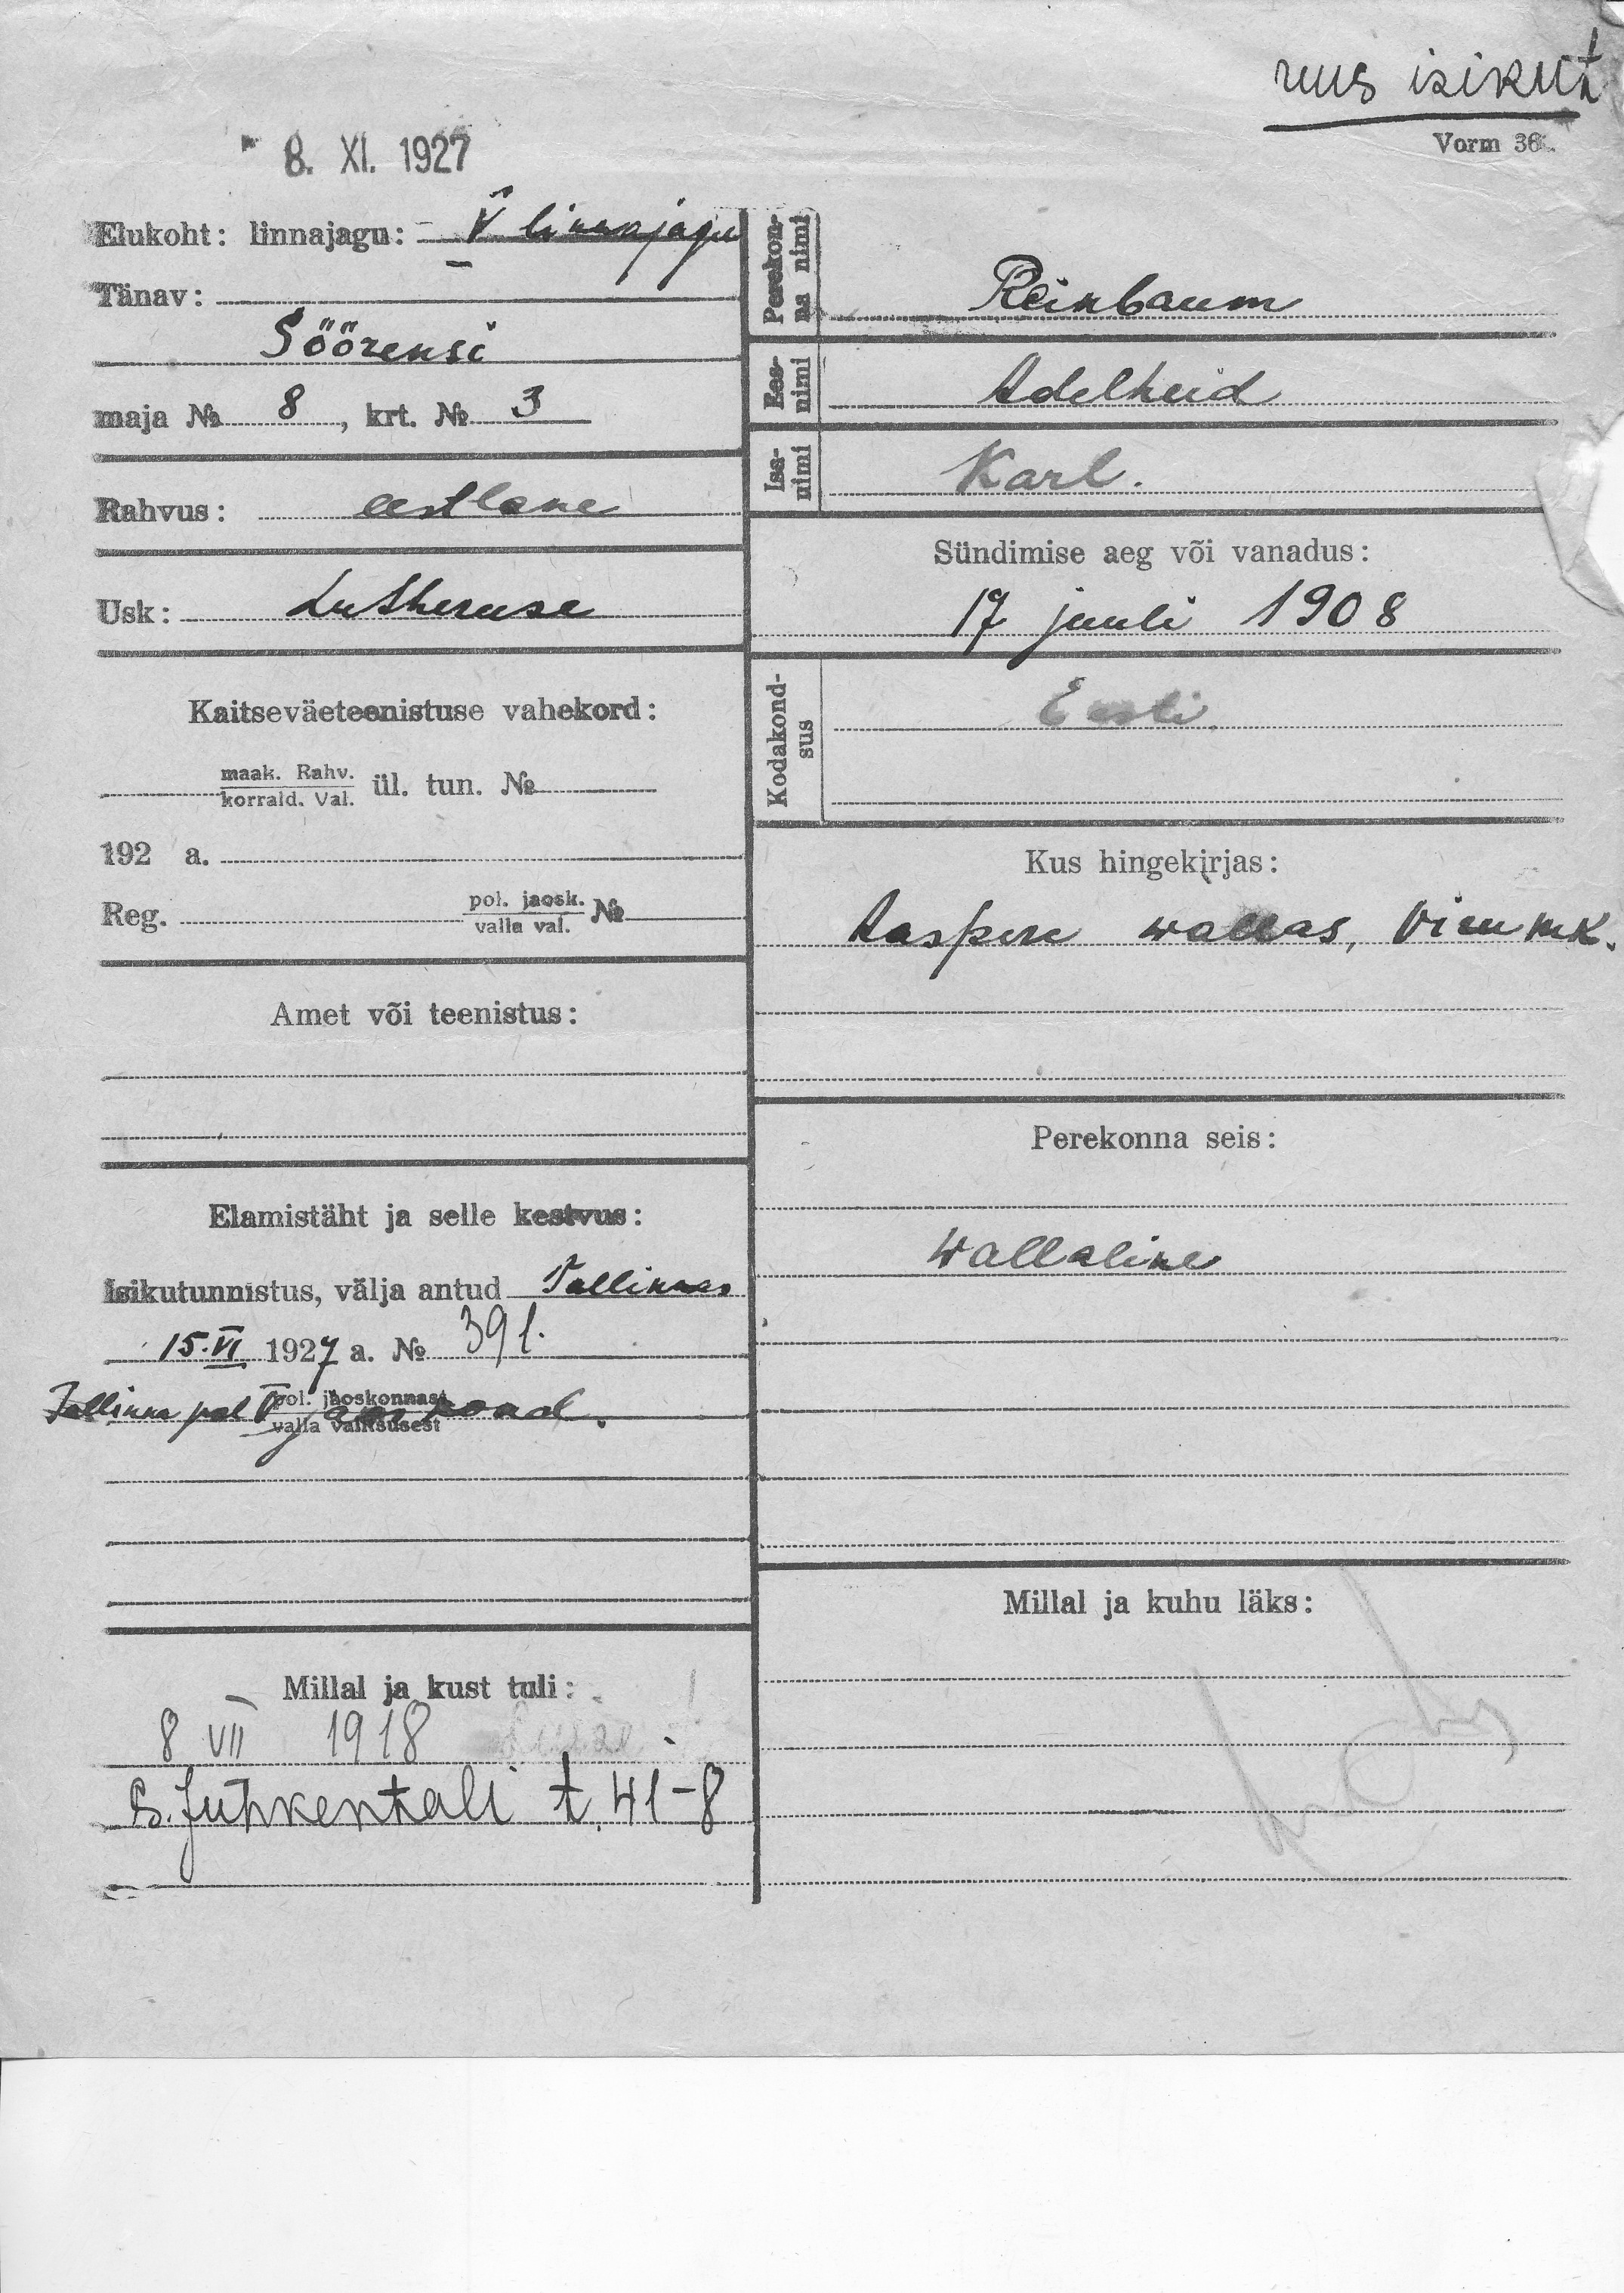 uus isikut
Vorm 36.
8. XI. 1927
Elukoht: linnajagu: V linnajagu
Tänav:
Söörensi
maja № 8, krt. № 3
Rahvus: eestlane
Usk: Lutheruse
Kaitseväeteenistuse vahekord:
maak. Rahv.
korrald. Val. ül. tun. №
192 a.
Reg. pol. jaosk.
valla val. №
Amet või teenistus:
Elamistäht ja selle kestvus:
Isikutunnistus, välja antud Tallinnas
15. VI 1927 a. № 391.
pol. jaoskonnast
Tallinna pol V
valla valitsusest
Millal ja kust tuli:
8 VII 1918
S. Juhkentali t. 41-8
Perekon-
na nimi
Reinbaum
Ees-
nimi
Adelheid
Isa-
nimi
Karl.
Sündimise aeg või vanadus:
17 juuli 1908
Kodakond-
sus
Eesti
Kus hingekirjas:
Aaspere wallas, Viru mk.
Perekonna seis:
Wallaline
Millal ja kuhu läks: